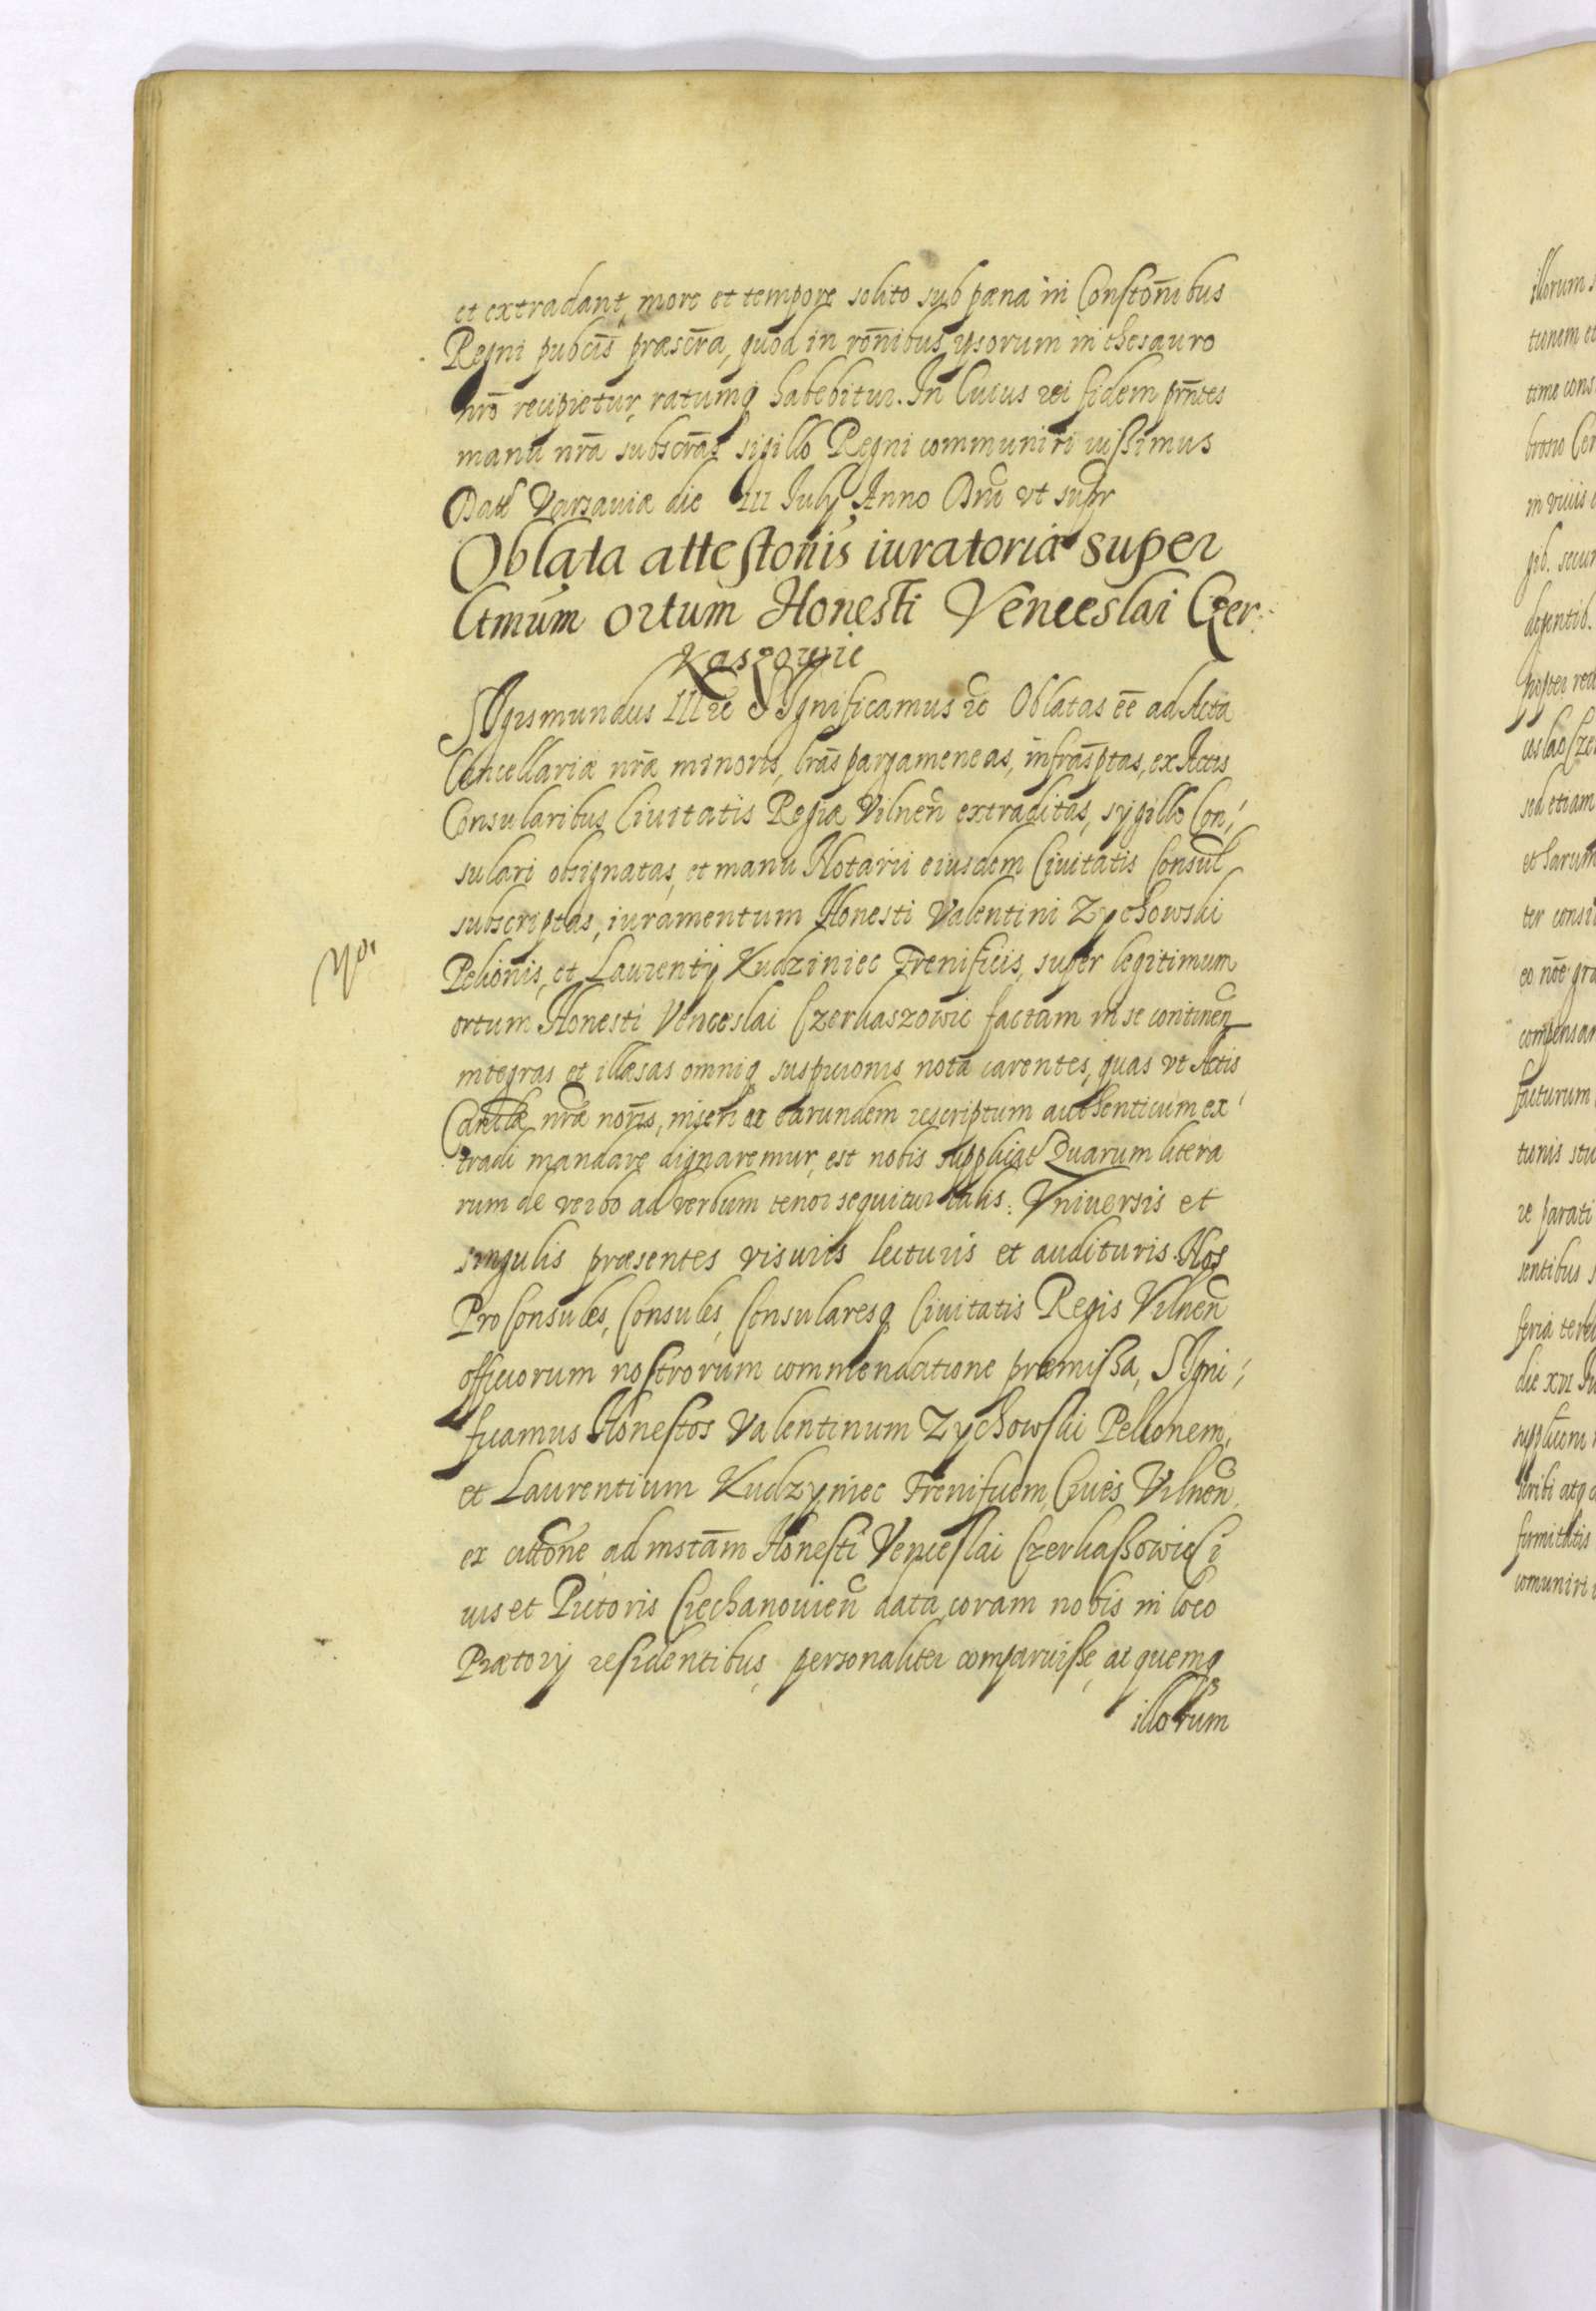 et extradant, more et tempore solito sub pæna in Constonibus
Regni pubcis præscra, quod in ronibus ipsorum in thesauro
nro recipietur, ratumq habebitur. In Cuius rei fidem prntes
manu nra subscras sigillo Regni communiri iussimus
Datt Varsaviæ die III July Anno Dni vt supr
Oblata attestonis iuratoriæ super
ltmum ortum Honesti Venceslai Czer:
kaszowic
SIgismundus III rc SIgnificamus rc Oblatas ee ad Acta
Cancellariæ nræ minoris, lras pargameneas, infrasptas, ex Actis
Consularibus Ciuitatis Regiæ Vilnen extraditas, sygillo Con,
sulari obsignatas, et manu Notarii eiusdem Ciuitatis Consul
subscriptas, iuramentum Honesti Valentini Zychowski
Pelionis, et Laurentij Kudziniec Frenificis, super legitimum
ortum Honesti Venceslai Czerkaszowic factam in se continen
integras et illæsas omniq suspicionis nota carentes, quas vt Actis
nræ noris, ex earundem rescriptum authenticum ex
tradi mandare dignaremur, est nobis supplicat Quarum litera
rum de verbo ad verbum tenor sequitur talis: Vniversis et
singulis præsentes visuris lecturis et audituris. Nos
Pro Consules, Consules, Consularesq Ciuitatis Regis Vilnen
officiorum nostrorum commendatione præmissa, SIgni,
ficamus Honestos Valentinum Zychowski Pellionem,
et Laurentium Kudzyniec Frenificem, Ciues Vilnen,
ex cittone ad instam Honesti Venceslai Czerkassowic Ci
uis et Pictoris Ciechanouien data, coram nobis in loco
Prætorij residentibus, personaliter comparuisse, ac quemq
illorum